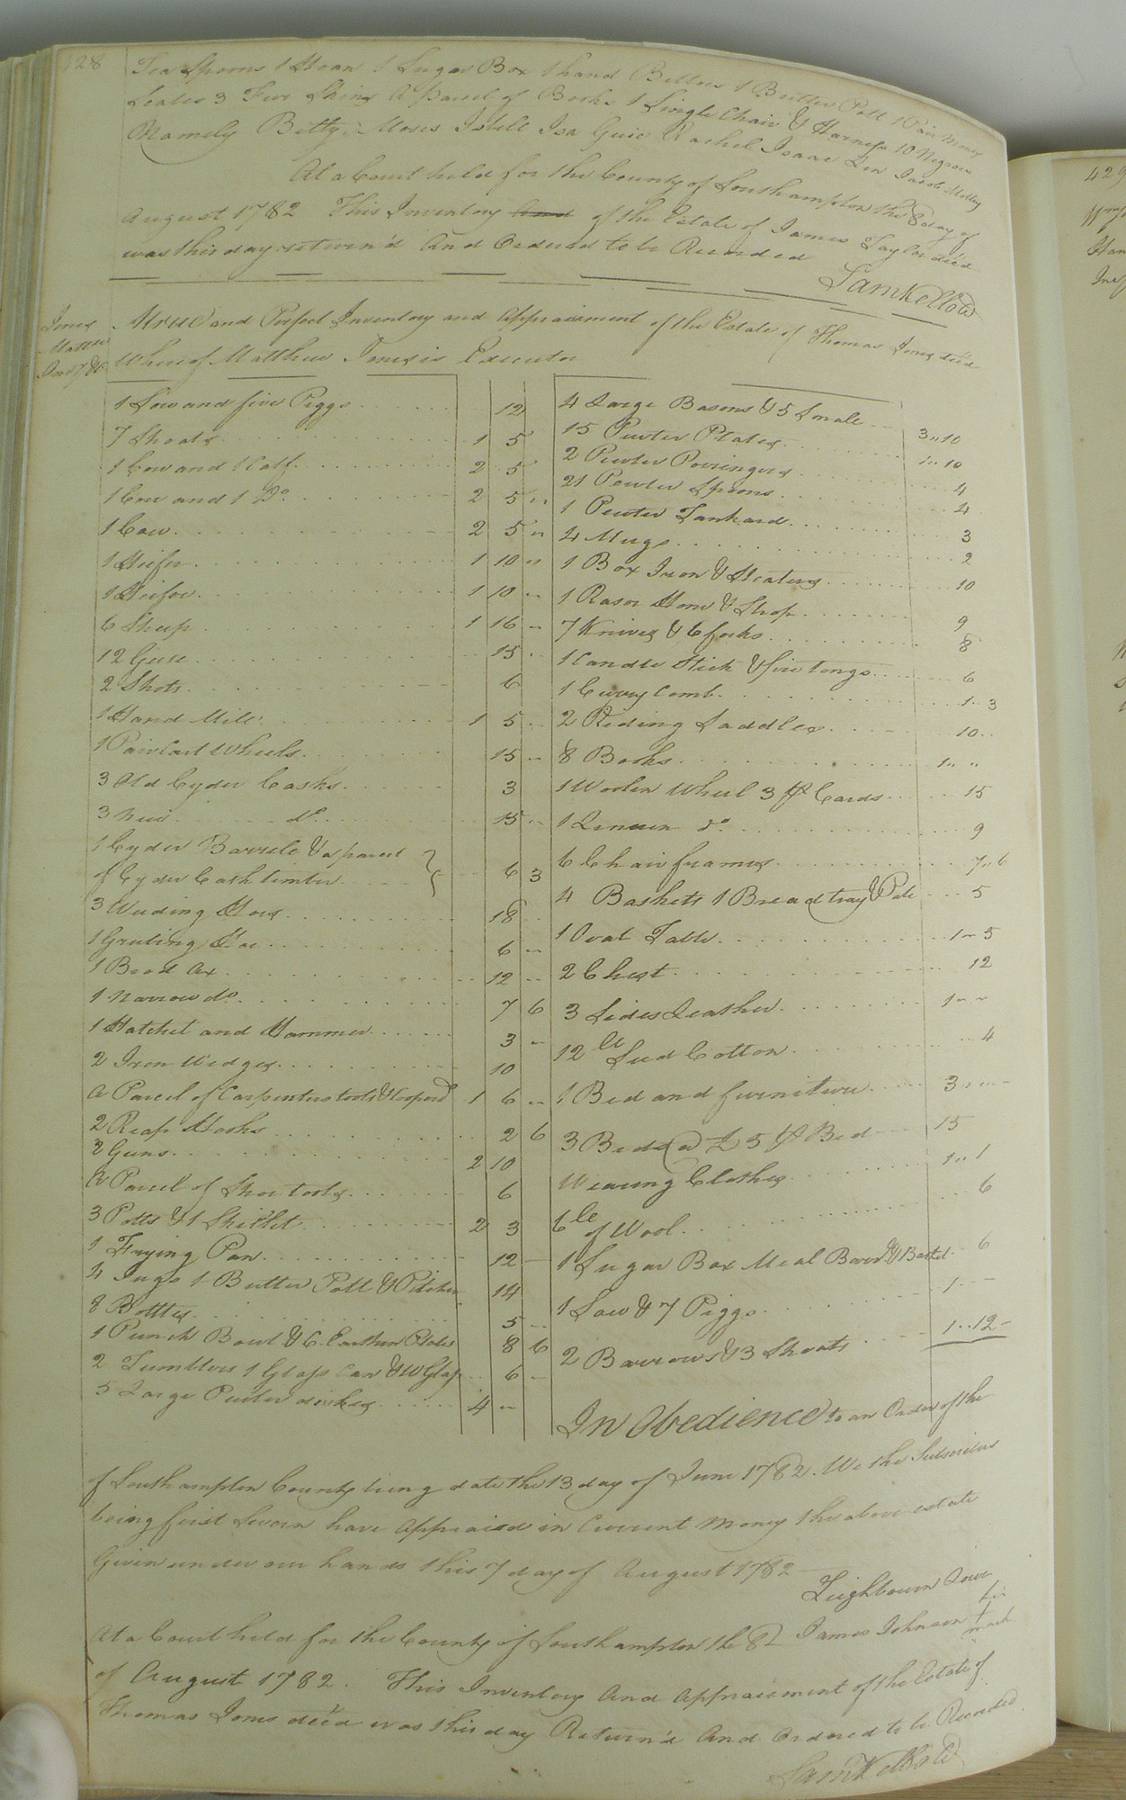 128
Tea Spoons 1 Stear 1 Sugar Box 1 hand Bellows 1 Butter Pott 1 Pair money
Scales 3 Furr Skins A parcel of Books 1 Single Chair & Harness 10 Negroes
Namely Betty Moses Isbell Isa Guie Rachel Isaac Jacob
At a Court held for the County of Southampton the 8 day of
August 1782 This Inventory and of the Estate of James Taylor dec'd
was this day return'd And Ordered to be Recorded
Sam Kello Cl
Jones
Matthew
A true and Perfect Inventory and Appraisment of the Estate of Thomas Jones dec'd
Whereof Matthew Jones is Executor
1 Sow and five Piggs 12
7 Shoats 1 5
1 Cow and 1 Calf 2 5
1 Cow and 1 Do 2 5 "
1 Cow 2 5 "
1 Heifer 1 10 "
1 Heifer 1 10 "
6 Sheep 1 16 "
12 Geese 15
2 Shots 6
1 Hand Mill 1 5
1 Pair Cart Wheels 15
3 Old Cyder Casks 3
3 New do 15
1 Cyder Barrele & a parcel
of Cyder Cash timber 6 3
3 Weeding Hoes 18
1 Grubing Hoe 6
1 Broad Ax 12
1 narrow do 7 6
1 Hatchet and Hammer 3
2 Iron Wedges 10
A Parcel of Carpenters tools & Coopers 1 6
2 Reap Hooks 2 6
2 Guns 2 10
A Parcel of Shoe tools 6
3 Potts & 1 Skillet 2 3
1 Frying Pan 12
4 Jugs 1 Butter Pott & Pitcher 14
8 Bottles 5
1 Punch Bowl & 6 Earthen Plates 8 6
2 Tumblers 1 Glass Can & W Glass 6
5 Large Puter dishes 4
4 Large Basons & 5 Smale 3 " 10
15 Pewter Plates 1 " 10
2 Pewter Porringers 4
21 Pewter Spoons 4
1 Pewter Tankard 3
4 Mugs 2
1 Box Iron & Heaters 10
1 Rasor Hone & Strop 9
7 Knives & 6 forks 8
1 Candle Stick & fire tongs 6
1 Curry Comb 1 " 3
2 Riding Saddles 10
8 Books 1 " "
1 Woolen Wheel 3 pr Cards 15
1 Linnen do 9
6 Chair frames 7 " 6
4 Baskets 1 Bread tray & Pale 5
1 Oval Table 1 " 5
2 Chest 12
3 Sides Leather 1 " "
12 lb Seed Cotton 4
1 Bed and furniture 3 " "
3 Beds @ £ 5 pr Bed 15
Wearing Clothes 1 " 1
6 lb of Wool 6
1 Sugar Box Meal Barrel & Basket 6
1 Sow & 7 Piggs 1
2 Barrows & 3 Shoats 1 " 12
In Obedience to an Order of the
of Southampton County being date the 13 day of June 1782. We the Subscribers
being first Sworn have Appraised in Current Money the above estate
Given under our hands this 7 day of August 1782
Lighbourn Jones
James Johnson + his mark
At a Court held for the County of Southampton the 8
of August 1782. This Inventory And Appraisment of the Estate of
Thomas Jones dec'd was this day Return'd And Ordered to be Recorded
Sam Kello Cl
429